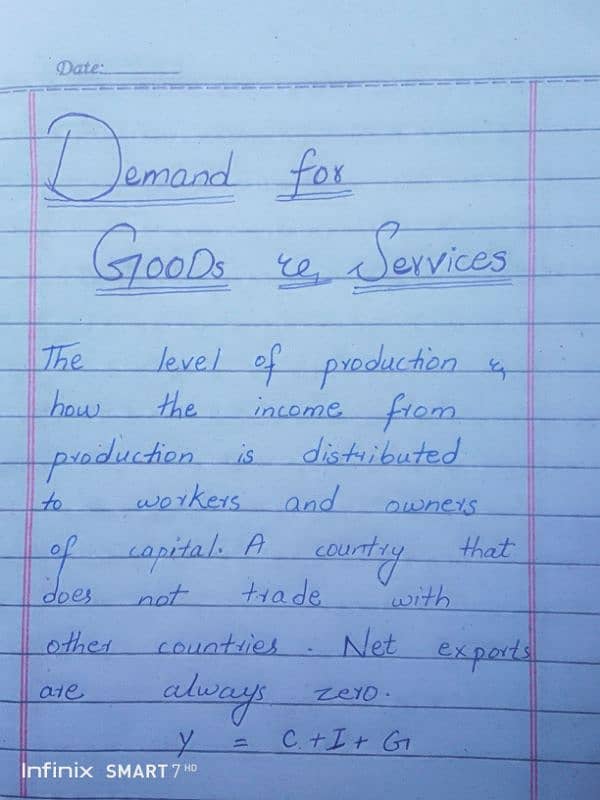 Date:
Demand for
GOODs & Services
The level of production &
how the income from
production is distributed
to workers and owners
of capital. A country that
does not trade with
other countries. Net exports
are always zero.
Y = C + I + G
Infinix SMART 7 HD